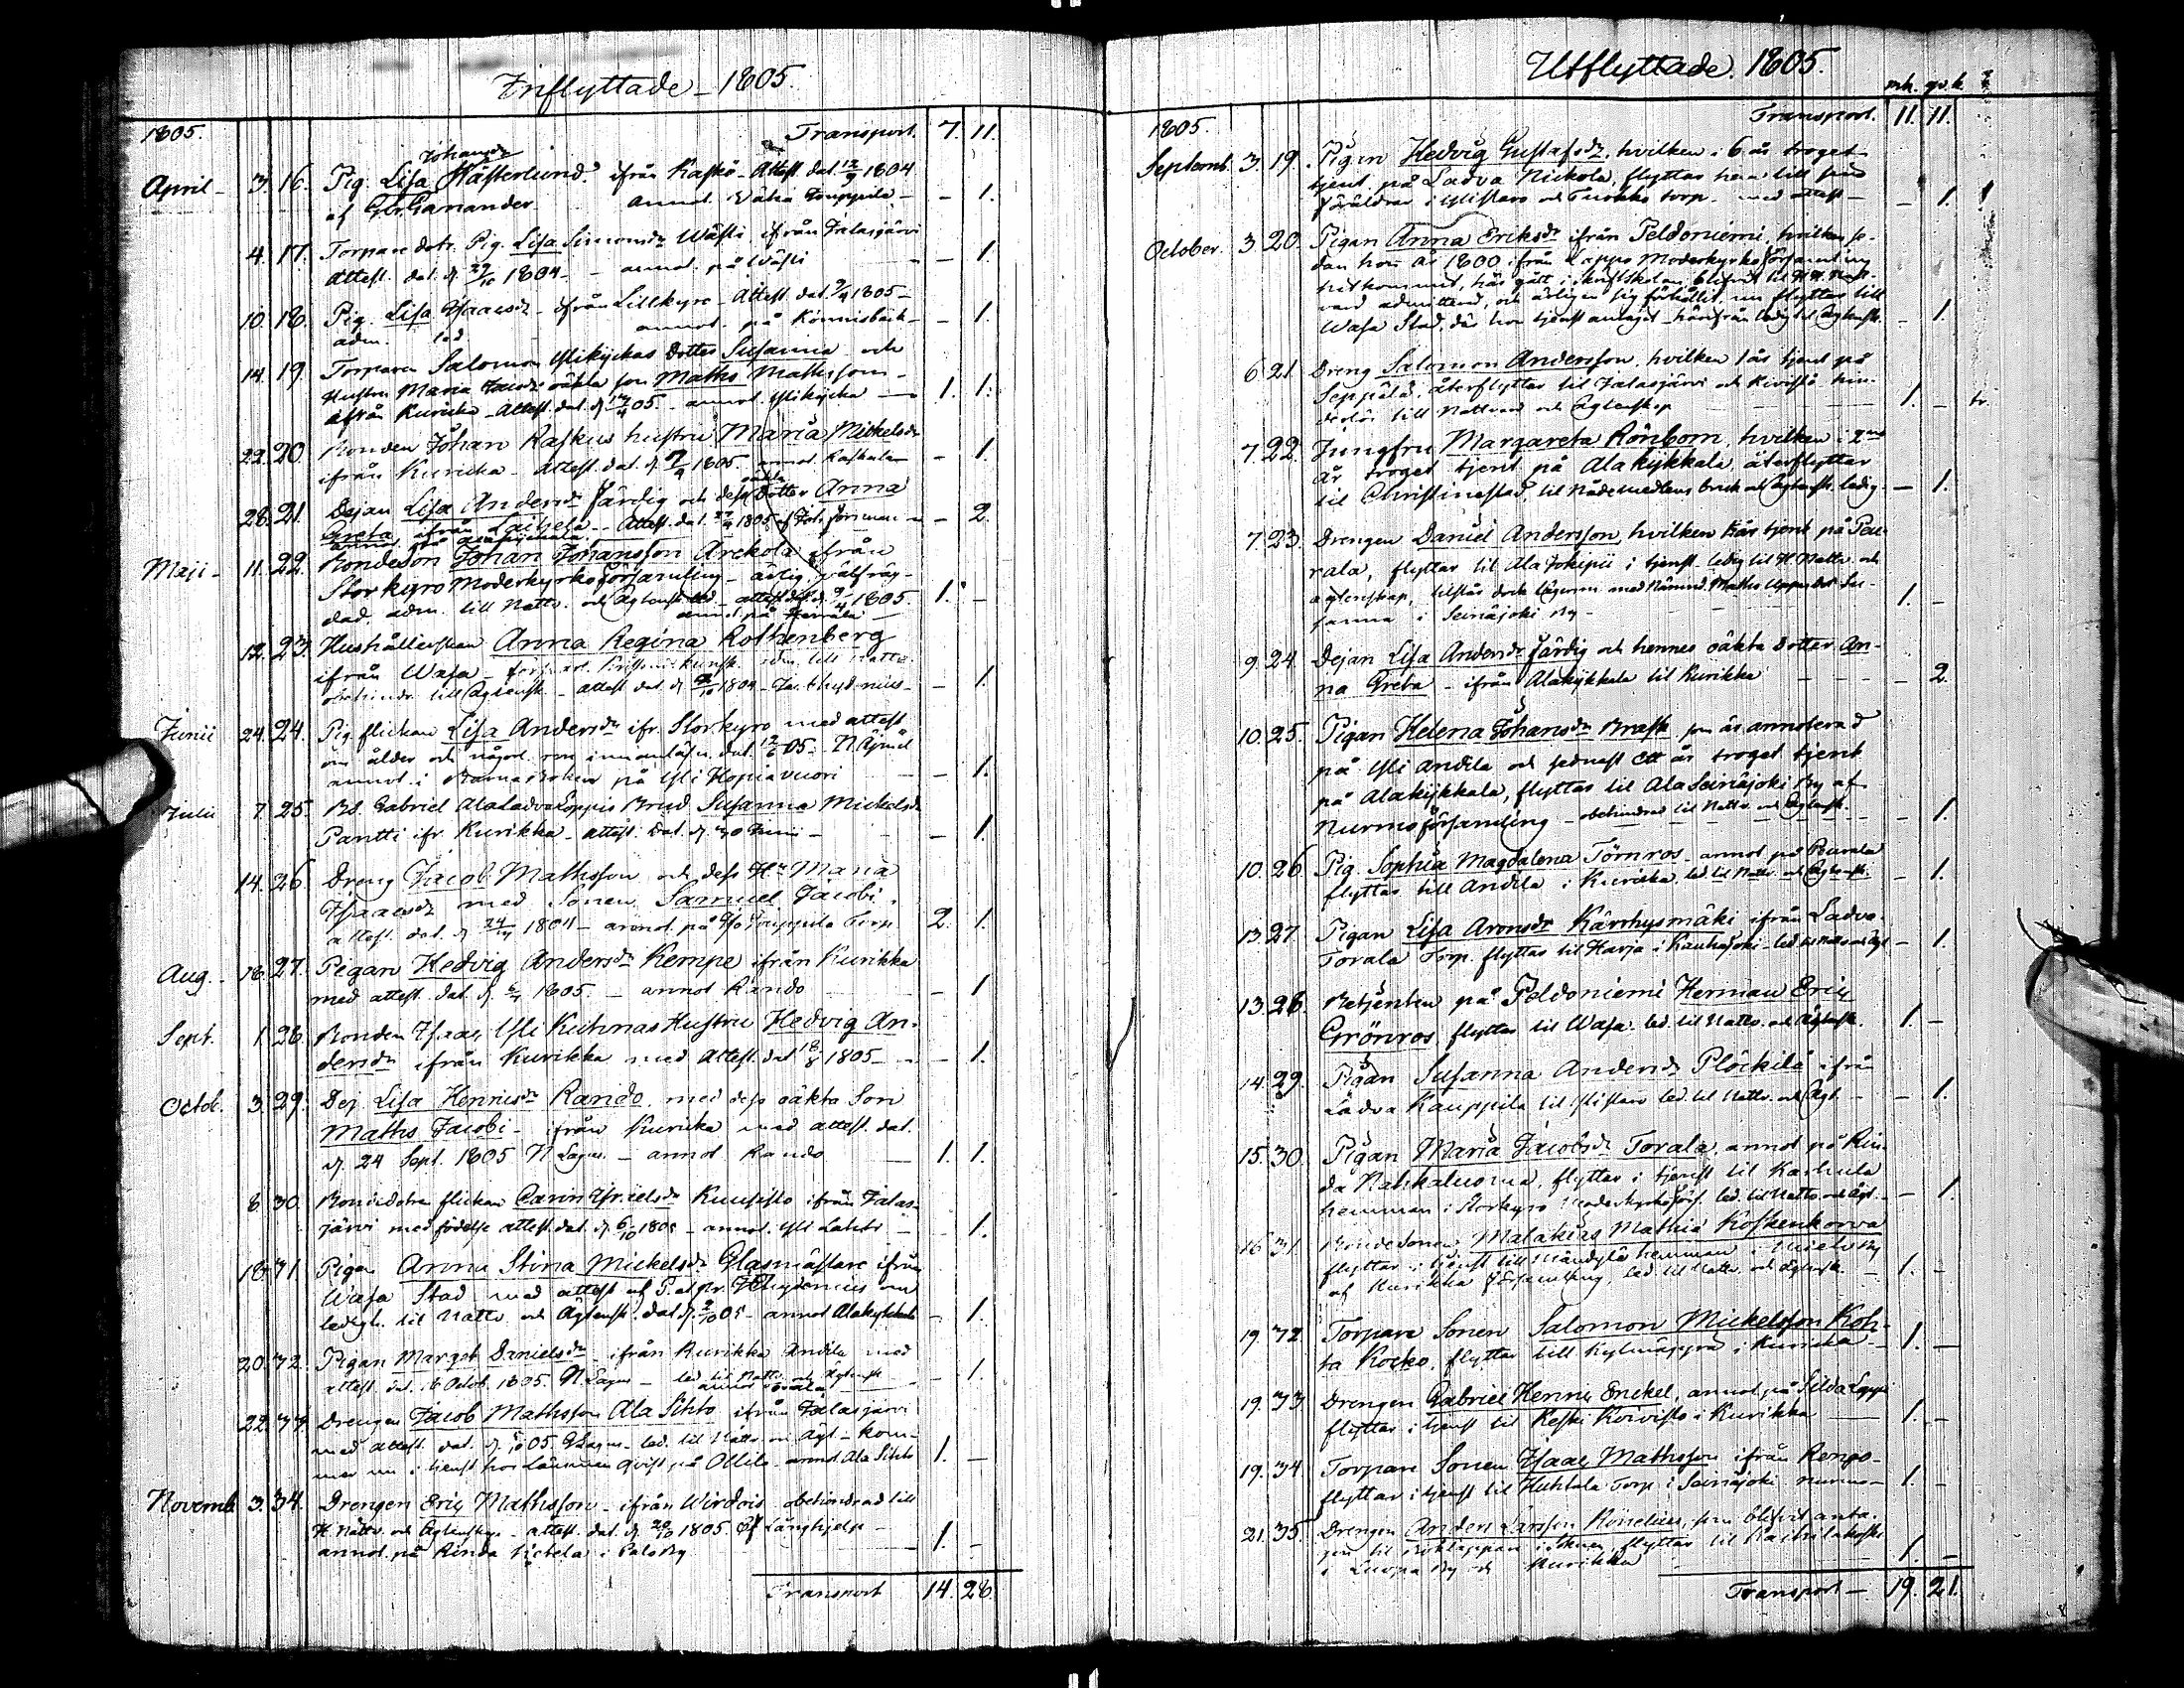 Inflyttade - 1805.
1805. Transport. 7. 11.
Johansdr
April - 3. 16. Pig. Lisa Hästerlund. ifrån Kaskö - Attest. dat. 12/9 1804
af Gbr Ganander annot. - 1.
4. 17. Torpare dotr. Pig. Lisa Simonsdr Wästi ifrån Jalasjärvi
attest. dat. d. 29/10 1804 - annot. på Wästi - 1.
10. 18. Pig. Lisa Isaacsdr - ifrån Lillkyro - Attest dat. 1805 -
adm. led annot. på Könnisbäck - - 1.
14. 19. Torparen Salomon Ylikyckas Dotter Susanna och
Hustru Maria oäkta son Maths Mathsson -
ifrån Kurikka - Attest. dat. d. 05. - annot. Ylikycka - 1. 1.
22. 20. Bonden Johan Raskus hustru Maria Mickelsdr
ifrån Kurikka - Attest. dat. d. 1805. annot. Raskala - 1.
oäkta
28. 21. Dejan Lisa Andersdr Färdig och dess Dotter Anna
Greta ifrån Laihela - Attest. dat. 1805 - 2.
annot. på Alakykkala
Maji - 11. 22. Bondeson Johan Johansson Arckola ifrån
Storkyro Moderkyrko Församling - ärlig, välfräg-
dad, adm. till Nattv. och Ägtensk. led - attest dat. d. 1805. 1. -
annot. på
12. 23. Hushållerskan Anna Regina Rothenberg
ifrån Wasa - adm. till Nattv.
obehindr. till Ägtensk. - attest dat. d. 1804 - - 1.
Junii 24. 24. Pig. flickan Lisa Andersdr ifr. Storkyro med attest
om ålder och någorl. innanläsn. dat. 05.
annot. i Barnaboken på Yli Hopiavuori - 1.
Julii 7. 25. Bd. Gabriel AlaLadvaLoppis Brud Susanna Mickelsdr
Pantti ifr. Kurikka - attest. Dat. d. 30 Junii - - 1.
14. 26. Dreng Jacob Mathsson och dess Hu Maria
Isaacsdr med Sonen Samuel Jacobi.
attest. dat. d. 1804 - annot. på Torp 2. 1.
Aug. - 18. 27. Pigan Hedvig Andersdr Kempe ifrån Kurikka
med attest. dat. d. 1805. - annot Rando - 1
Sept. 1. 28. Bonden Isaac Yli Kuhnas Hustru Hedvig An-
dersdr ifrån Kurikka med Attest. dat 18/8 1805 - - 1.
Octob. 3. 29. Dej. Lisa Henricsdr Rando. med dess oäkta Son
Maths Jacobi - ifrån Kurikka med attest. dat.
d. 24 Sept. 1805 N Lagus. - annot Rando - 1. 1.
8. 30. Bondedotra flickan Carin Israelsdr Kuusisto ifrån Jalas-
järvi med födelse attest. dat. d. 6/10 1805 - annot. Yli Lahti - 1.
18. 31. Pigan Anna Stina Mickelsdr Glasmästare ifrån
Wasa Stad med attest af P. at Pr. Chydenius om
ledigh. til Nattv. och Ägtensk. dat d. 2/10 05 - annot Alakykkala - 1.
20. 32. Pigan Marget Danielsdr ifrån Kurikka Andila med
attest. dat. 6 Octob. 1805. N. Lagus - led. til Nattv. och Ägtensk - 1.
22. 33. Drengen Jacob Mathsson Ala Sihto ifrån Jalasjärvi
med attest. dat. d. 05. Lagus - led. til Nattv. och Ägt. - kom-
mer nu i tjenst hos Länsman Qvist på Ollila - annot. Ala Sihto 1. -
Novemb. 3. 34. Drengen Eric Mathsson - ifrån Wirdois - obehindrad till
H. Nattv. och Ägtenskap - attest. dat. d. 20/10 1805. Långhjelp -
annot. på Rinda i Palo By 1. -
Transport 14. 28.
Utflyttade. 1805.
mk. qv.k.
1805. Transport. 11. 11.
Septemb. 3. 19. Pigan Hedvig Gustafsdr. hvilken i 6 år troget
tjent på Ladva Nickola, flyttar hem till sina
föräldrar i Ylistaro och Tuokko torp. med attest - - 1.
October. 3. 20. Pigan Anna Ericsdr ifrån Peldoniemi, hvilken se-
dan hon år 1800 ifrån Lappo Moderkyrko församling
hitkommit, här gått i Skriftskolan, blifvit til H. H. Natt-
vard admitterad, och ärligen sig förhållit, nu flyttar till
Wasa Stad, där hon tjenst antagit - härifrån ledig til Ägtensk. - 1.
6. 21. Dreng Salomon Andersson, hvilken 1 år tjent på
Seppälä, återflyttar til Jalasjärvi och Kivistö hin-
derlös till Nattvard och Ägtenskap 1. -
7. 22. Jungfru Margareta Rönbom, hvilken i 2ne
år troget tjent på Alakykkala återflyttar
til Christinestad, til Nådemedlens bruk och Ägtensk. ledig - - 1.
7. 23. Drengen Daniel Andersson, hvilken år tjent på Peu-
rala, flyttar til Ala Jokipii i tjenst - ledig til H. Nattv. och
ägtenskap,
i Seinäjoki By - 1. -
9. 24. Dejan Lisa Andersdr Färdig och hennes oäkta Dotter An-
na Greta - ifrån Alakykkala til Kurikka - 2.
10. 25. Pigan Helena Johansdr Brask som är annoterad
på Yli Andila och sednast ett år troget tjent
på Alakykkala, flyttar til Ala Seinäjoki By af
Nurmo församling - obehindrad til Nattv. och Ägtensk. - 1.
10. 26. Pig. Sophia Magdalena Törnros - annot på Peurala
flyttar till Andila i Kurikka, led. til Nattv. och Ägtensk. - 1.
13. 27. Pigan Lisa Aronsdr Kärrhysmäki ifrån Ladva-
Torala Torp. flyttar til Harja i Kauhajoki - - 1.
13. 28. Betjenten på Peldoniemi Herman Eric
Grönros flyttar til Wasa. led. til Nattv. och Ägtensk. 1. -
14. 29. Pigan Susanna Andersdr Plöckilä ifrån
Ladva Kauppila til Ylistaro led. til Nattv. och Ägt. - - 1.
15. 30. Pigan Maria Jacobsdr Torala, annot på Rin-
da Nahkaluoma, flyttar i tjenst til Karhula
hemman i Storkyro Moderkyrkoförs. led. til Nattv. och Ägt. - - 1.
16. 31. Bondesonen Malakias Mathiæ Koskenkorva
flyttar i tjenst till Mandylä hemman i Mieto By
af Kurikka Församling, led. til Nattv. och Ägtensk. - 1. -
19. 32 Torpare Sonen Salomon Mickelsson Koh-
ta Kocko. flyttar till i Kurikka - 1. -
19. 33 Drengen Gabriel Henric Enckel, annot. på
flyttar i tjenst til Keski Koivisto i Kurikka 1. -
19. 34. Torpare Sonen Isaac Mathsson ifrån Rengo-
flyttar i tjenst til Huhtala Torp i Seinäjoki 1. -
21. 35. Drengen Anders Larsson som blifvit anta-
gen til flyttar til
i Luopa By och Kurikka 1. -
Transport - 19. 21.